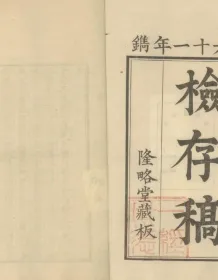 六十一年鐫
檢存稿
隆略堂藏板